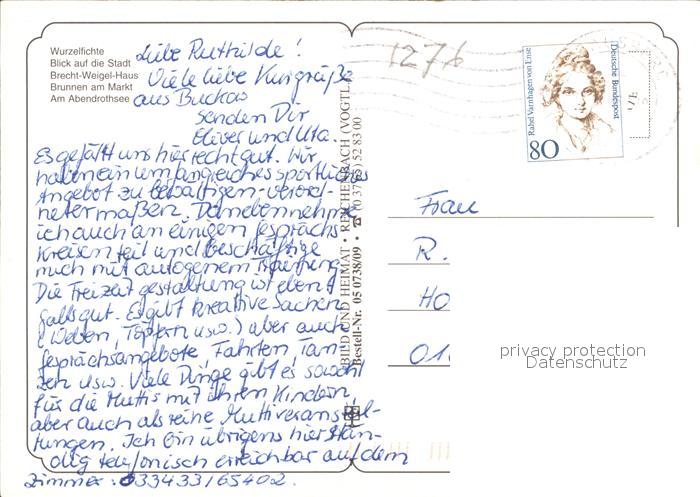 Wurzelfichte
Blick auf die Stadt
Brecht-Weigel-Haus
Brunnen am Markt
Am Abendrothsee
Liebe Ruthilde!
Viele liebe Kurgrüße
aus Buckow
senden Dir
Oliver und Uta.
Es gefällt uns hier recht gut. Wir
haben ein umfangreiches sportliches
Angebot zu bewältigen - verord-
netermaßen. Daneben nehme
ich auch an einigen Gesprächs
kreisen teil und beschäftige
mich mit autogenem Training.
Die Freizeitgestaltung ist eben
falls gut. Es gibt kreative Sachen
(Weben, Töpfern usw.) aber auch
Gesprächsangebote, Fahrten, Tan-
zen usw. Viele Dinge gibt es sowohl
für die Muttis mit ihren Kindern,
aber auch als reine Muttiveranstal-
tungen. Ich bin übrigens hier stän-
dig telefonisch erreichbar auf dem
Zimmer: 033433/65402.
BILD UND HEIMAT • REICHENBACH (VOGTL.
Bestell-Nr. 05 0738/09 • ☎ (0 37 65) 52 83 00
1276
Rahel Varnhagen von Ense
Deutsche Bundespost
80
Frau
R.
HO
01
privacy protection
Datenschutz